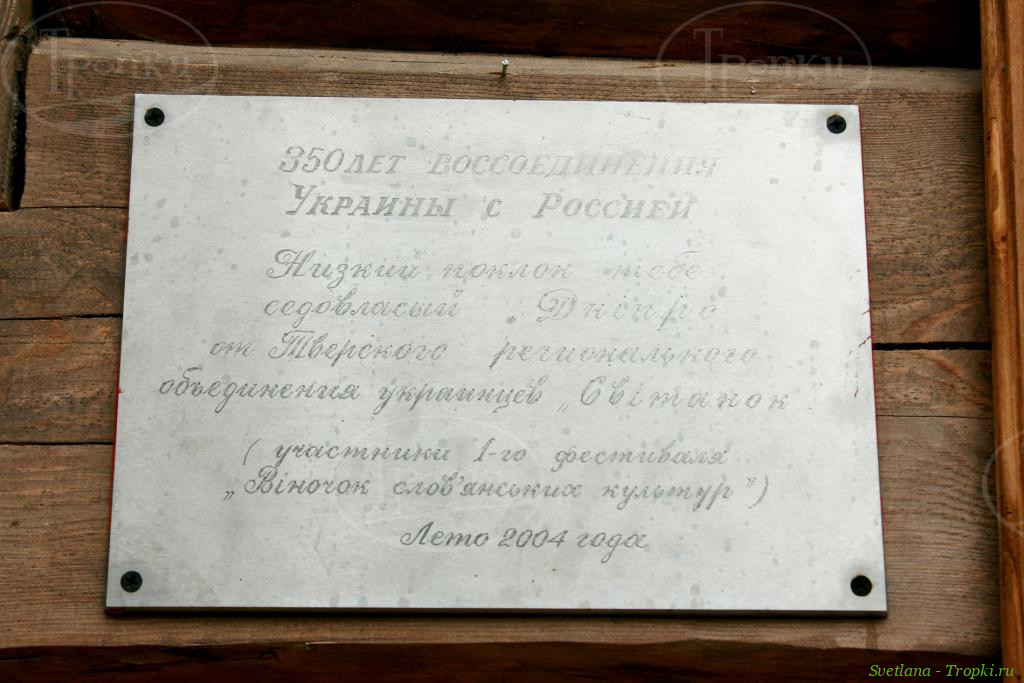 350 лет воссоединения
Украины с Россией
Низкий поклон тебе
седовласый „Дніпро
от Тверского регионального
объединения украинцев „Світанок"
(участники 1-го фестиваля
„Віночок слов'янських культур")
Лето 2004 года
Тропки
Тропки
Svetlana - Tropki.ru